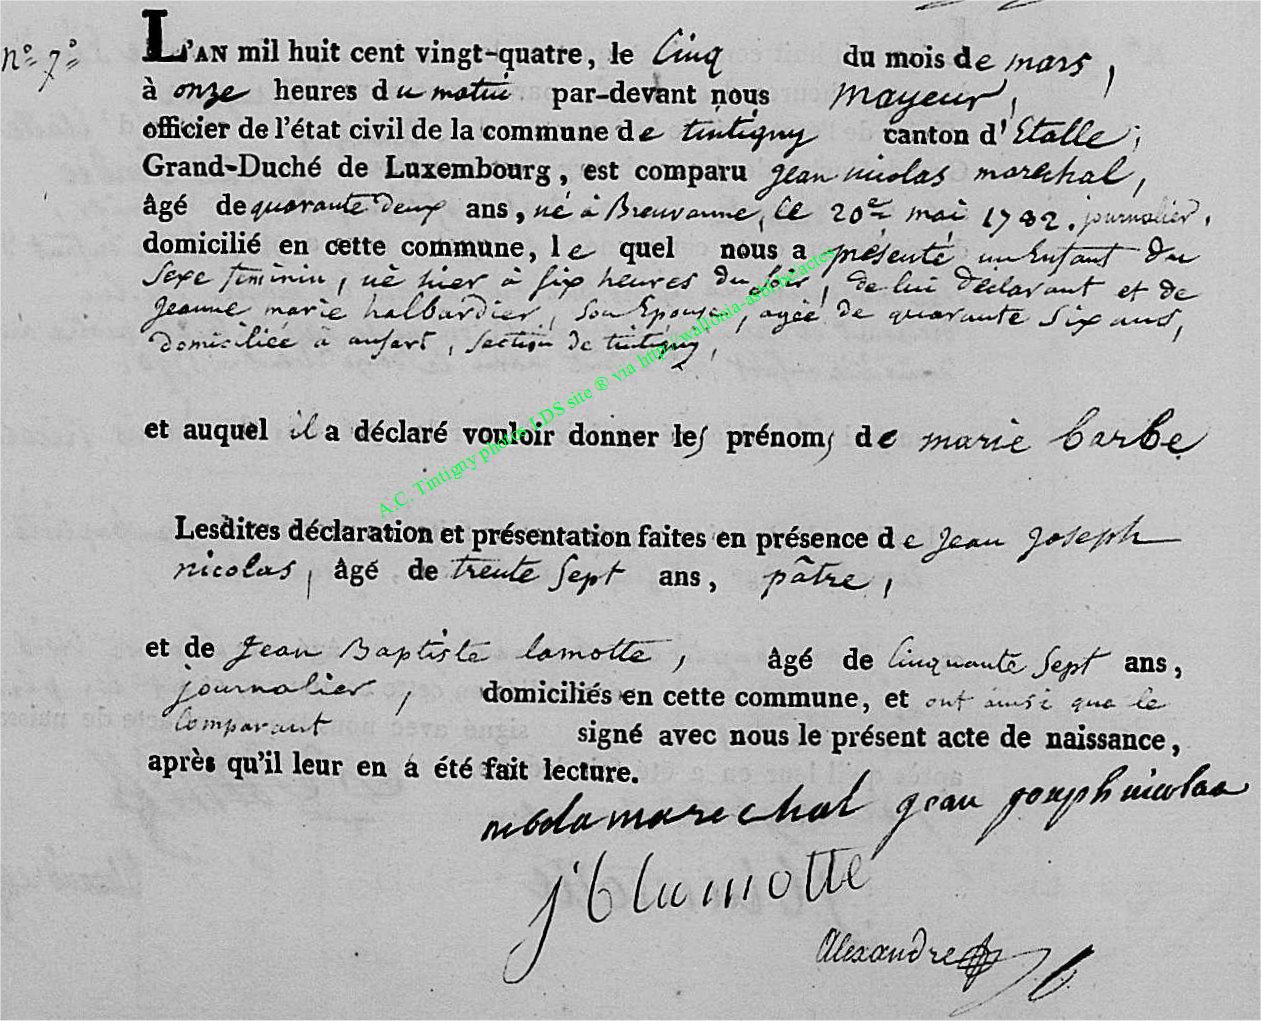 nº 7º
L'AN mil huit cent vingt-quatre, le Cinq du mois de mars,
à onze heures du matin par-devant nous mayeur,
officier de l'état civil de la commune de tintigny canton d'Etalle,
Grand-Duché de Luxembourg, est comparu jean nicolas marechal,
âgé de quarante deux ans, né à Breuvanne, le 20 mai 1782. journalier,
domicilié en cette commune, le quel nous a présenté un Enfant du
Sexe féminin, né hier à six heures du soir, de lui déclarant et de
jeanne marie halbardier, son Epouse, agée de quarante six ans,
domiciliée à ansart, section de tintigny,
et auquel il a déclaré vouloir donner les prénoms de marie barbe
Lesdites déclaration et présentation faites en présence de jean joseph
nicolas, âgé de trente Sept ans, pâtre,
et de jean Baptiste lamotte, âgé de Cinquante Sept ans,
journalier, domiciliés en cette commune, et ont ainsi que le
Comparant signé avec nous le présent acte de naissance,
après qu'il leur en a été fait lecture.
marechal jean joseph nicolas
j b lamotte
Alexandre
A.C. Tintigny photos LDS site ® via http://wallonia-asbl.be/actes